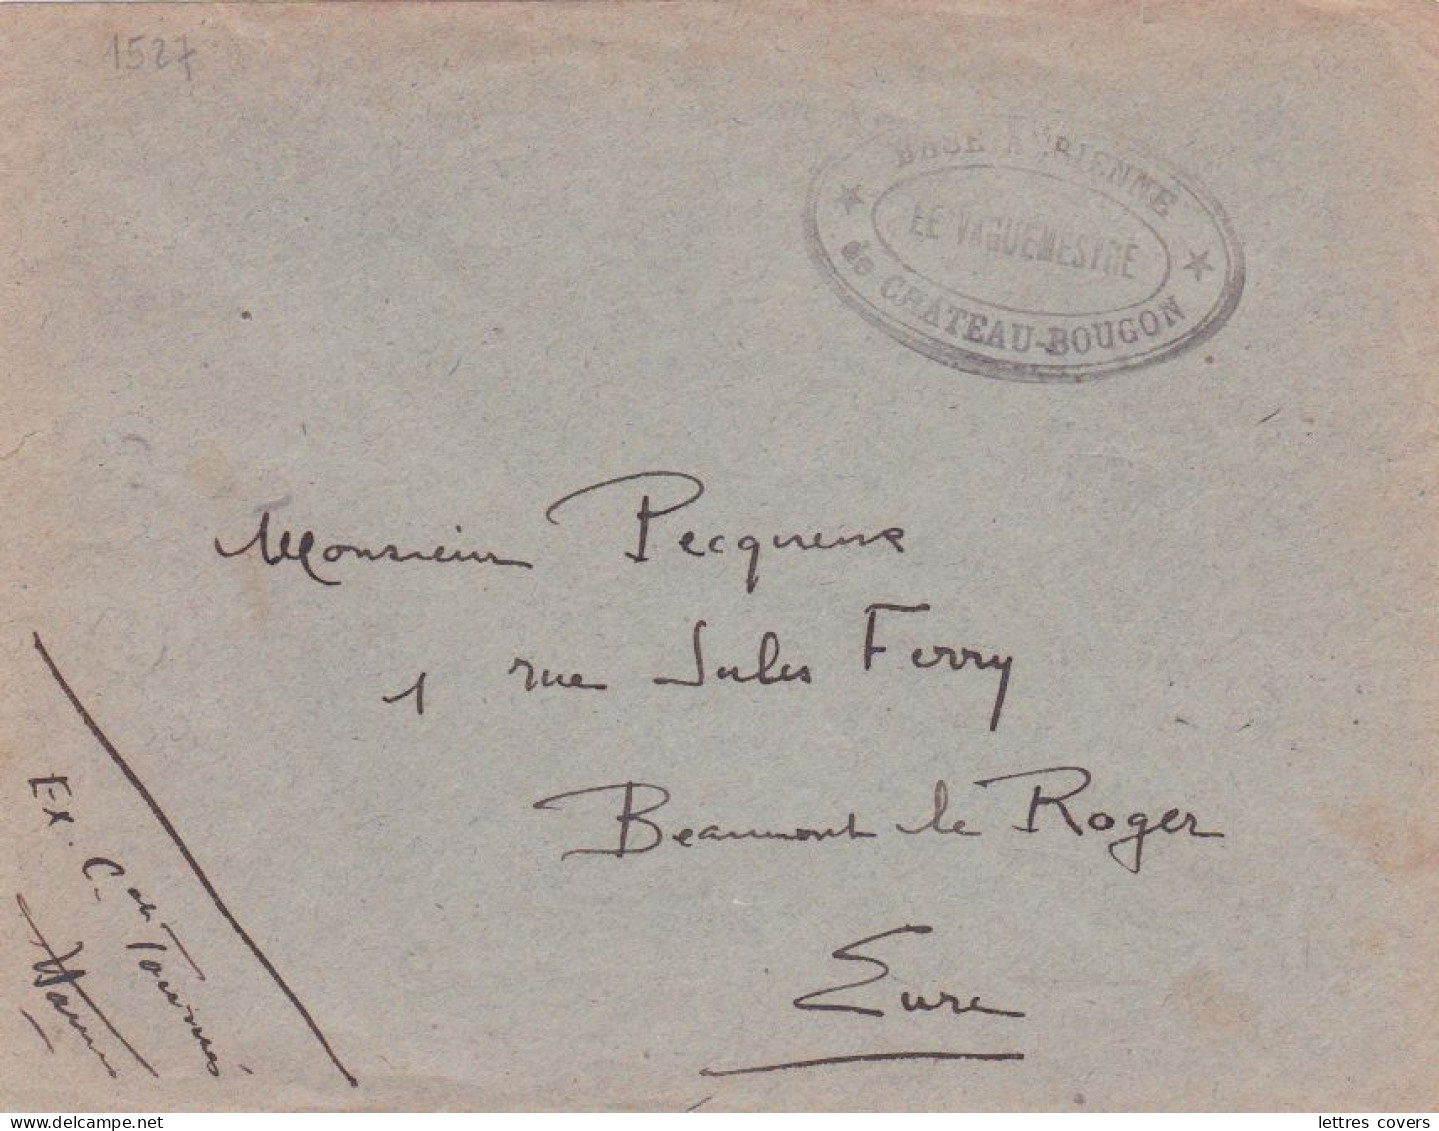 1527
BASE AÉRIENNE
LE VAGUEMESTRE
de CHATEAU-BOUGON
Monsieur Pecqueux
1 rue Jules Ferry
Beaumont le Roger
Eure
Ex. C
lettres covers